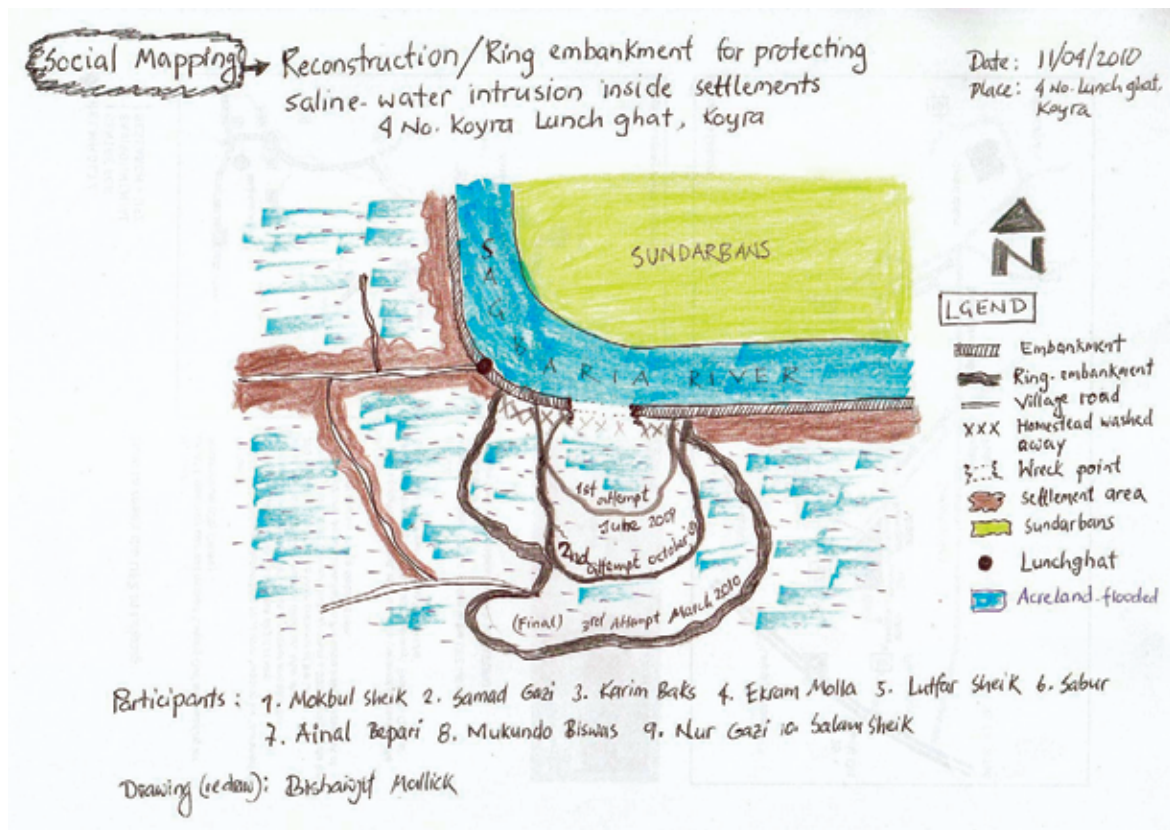 Social Mapping → Reconstruction/Ring embankment for protecting
saline-water intrusion inside settlements
4 No. Koyra Lunch ghat, Koyra
Date: 11/04/2010
Place: 4 No. Lunch ghat,
Koyra
SUNDARBANS
SAGBARIA RIVER
N
LGEND
Embankment
Ring-embankment
Village road
xxx Homestead washed
away
Wreck point
settlement area
sundarbans
Lunchghat
Acreland-flooded
1st attempt
June 2009
2nd attempt october 09
(Final) 3rd Attempt March 2010
Participants: 1. Mokbul sheik 2. Samad Gazi 3. Karim Baks 4. Ekram Molla 5. Lutfar Sheik 6. Sabur
7. Ainal Bepari 8. Mukundo Biswas 9. Nur Gazi 10. Salam Sheik
Drawing (redraw): Bishawjit Mallick